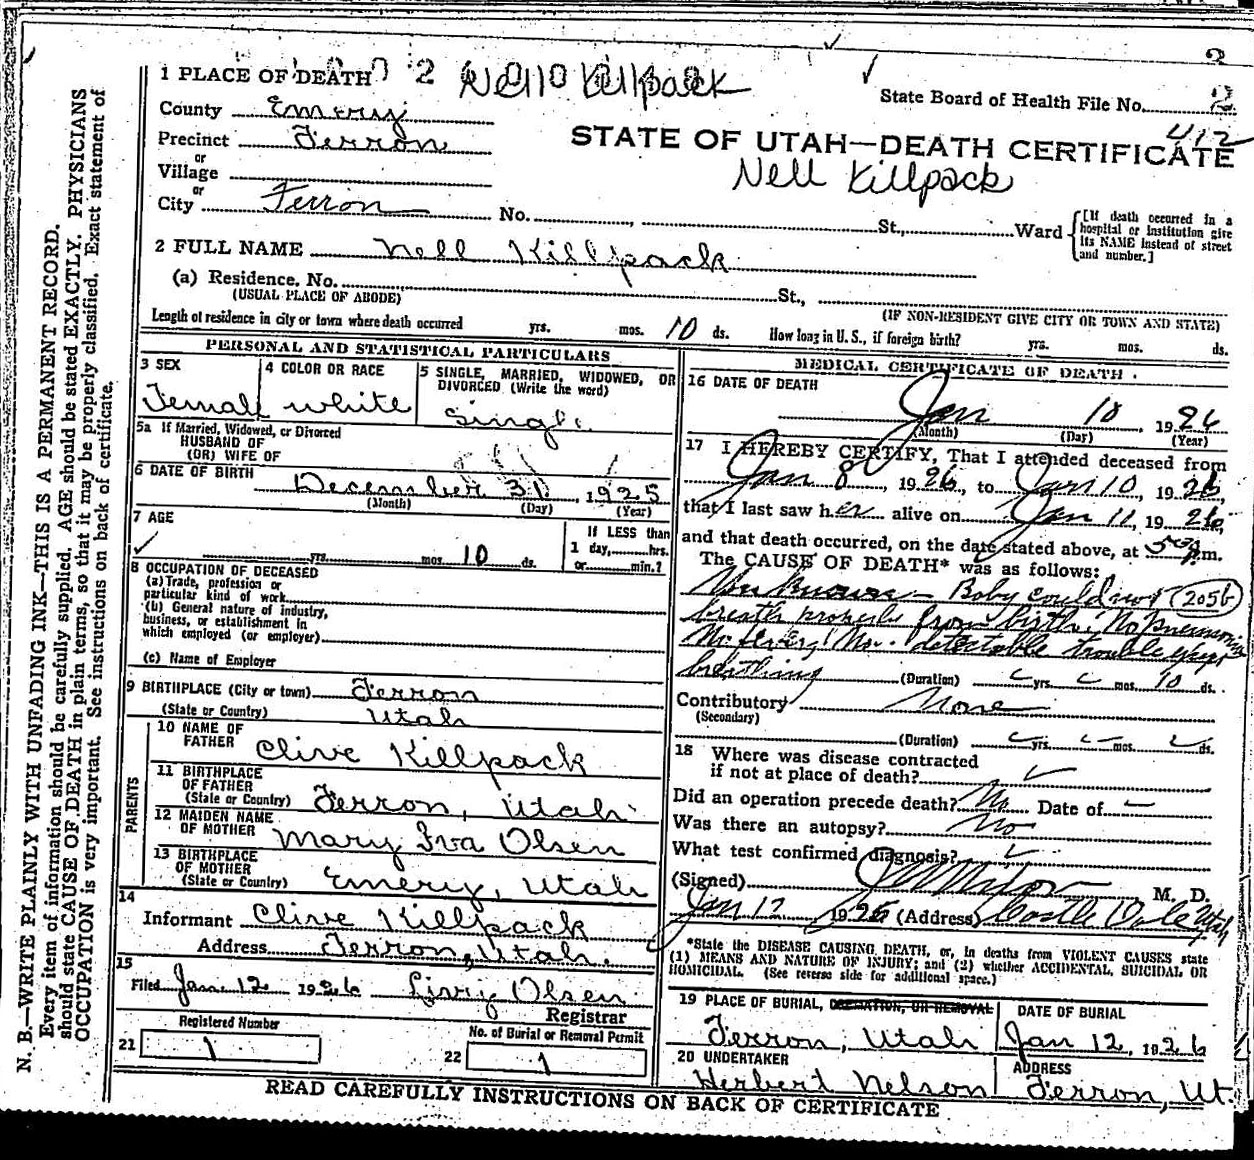 3
1 PLACE OF DEATH 2 Nell Killpack
State Board of Health File No. 2
412
County Emery
STATE OF UTAH—DEATH CERTIFICATE
Precinct Ferron
Nell Killpack
or
Village
or
City Ferron No. , St., Ward {[If death occurred in a hospital or institution give its NAME instead of street and number.]
2 FULL NAME Nell Killpack
(a) Residence. No. St.,
(USUAL PLACE OF ABODE) (IF NON-RESIDENT GIVE CITY OR TOWN AND STATE)
Length of residence in city or town where death occurred yrs. mos. 10 ds. How long in U. S., if foreign birth? yrs. mos. ds.
PERSONAL AND STATISTICAL PARTICULARS
3 SEX
Female
4 COLOR OR RACE
white
5 SINGLE, MARRIED, WIDOWED, OR
DIVORCED (Write the word)
Single
5a If Married, Widowed, or Divorced
HUSBAND OF
(OR) WIFE OF
6 DATE OF BIRTH
December 31, 1925
(Month) (Day) (Year)
7 AGE
yrs. mos. 10 ds.
If LESS than
1 day,......hrs.
or......min.?
8 OCCUPATION OF DECEASED
(a) Trade, profession or
particular kind of work
(b) General nature of industry,
business, or establishment in
which employed (or employer)
(c) Name of Employer
9 BIRTHPLACE (City or town) Ferron
(State or Country) Utah
PARENTS
10 NAME OF
FATHER Clive Killpack
11 BIRTHPLACE
OF FATHER
(State or Country) Ferron, Utah
12 MAIDEN NAME
OF MOTHER Mary Iva Olsen
13 BIRTHPLACE
OF MOTHER
(State or Country) Emery, Utah
14
Informant Clive Killpack
Address Ferron, Utah.
15
Filed Jan. 12 1926 Livry Olsen
Registrar
Registered Number
21 1
No. of Burial or Removal Permit
22 1
MEDICAL CERTIFICATE OF DEATH.
16 DATE OF DEATH
Jan 10, 1926
(Month) (Day) (Year)
17 I HEREBY CERTIFY, That I attended deceased from
Jan 8, 1926, to Jan 10, 1926,
that I last saw her alive on Jan 11, 1926,
and that death occurred, on the date stated above, at 5 p.m.
The CAUSE OF DEATH* was as follows:
Unknown – Baby could not 205b
breath properly from birth. No pneumonia
No fever! No detectable trouble
breathing (Duration) yrs. mos. 10 ds.
Contributory None
(Secondary)
(Duration) yrs. mos. ds.
18 Where was disease contracted
if not at place of death?
Did an operation precede death? No Date of —
Was there an autopsy? No
What test confirmed diagnosis?
(Signed) M. D.
Jan 12 1926 (Address) Castle Dale Utah
*State the DISEASE CAUSING DEATH, or, in deaths from VIOLENT CAUSES state
(1) MEANS AND NATURE OF INJURY; and (2) whether ACCIDENTAL, SUICIDAL OR
HOMICIDAL. (See reverse side for additional space.)
19 PLACE OF BURIAL, CREMATION, OR REMOVAL
Ferron, Utah
DATE OF BURIAL
Jan 12, 1926
20 UNDERTAKER
Herbert Nelson
ADDRESS
Ferron, Ut.
READ CAREFULLY INSTRUCTIONS ON BACK OF CERTIFICATE
N. B.—WRITE PLAINLY WITH UNFADING INK—THIS IS A PERMANENT RECORD.
Every item of information should be carefully supplied. AGE should be stated EXACTLY. PHYSICIANS
should state CAUSE OF DEATH in plain terms, so that it may be properly classified. Exact statement of
OCCUPATION is very important. See instructions on back of certificate.